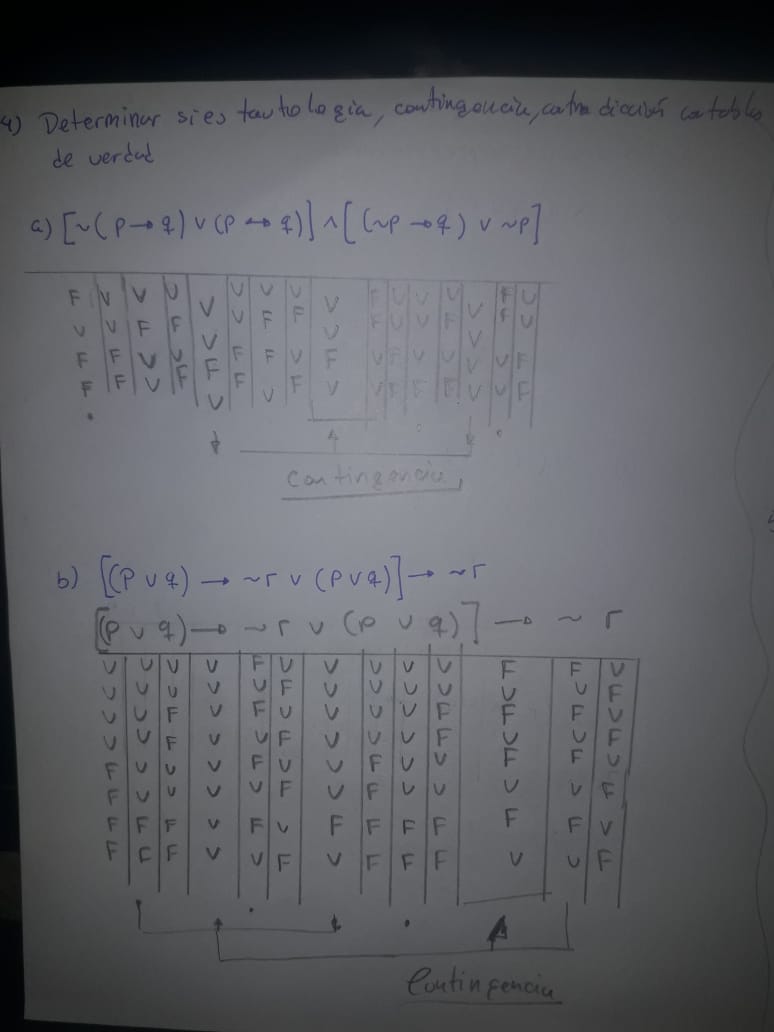 4) Determinar si es tautologia, contingencia, contradicción con tablas
de verdad
a) [~(p→q) ∨ (p↔q)] ∧ [(~p→q) ∨ ~p]
F V V V V V V V V F V V V V F V
V V F F V V F F V F V V F V F V
F F V V F F F V F V F V V V V F
F F V F V F V F V V F F F V V F
Contingencia
b) [(p ∨ q) → ~r ∨ (p ∨ q)] → ~r
[(p ∨ q) → ~ r ∨ (p ∨ q)] → ~ r
V V V V F V V V V V F F V
V V V V V F V V V V V V F
V V F V F V V V V F F F V
V V F V V F V V V F V V F
F V V V F V V F V V F F V
F V V V V F V F V V V V F
F F F V F V F F F F F F V
F F F V V F V F F F V V F
Contingencia